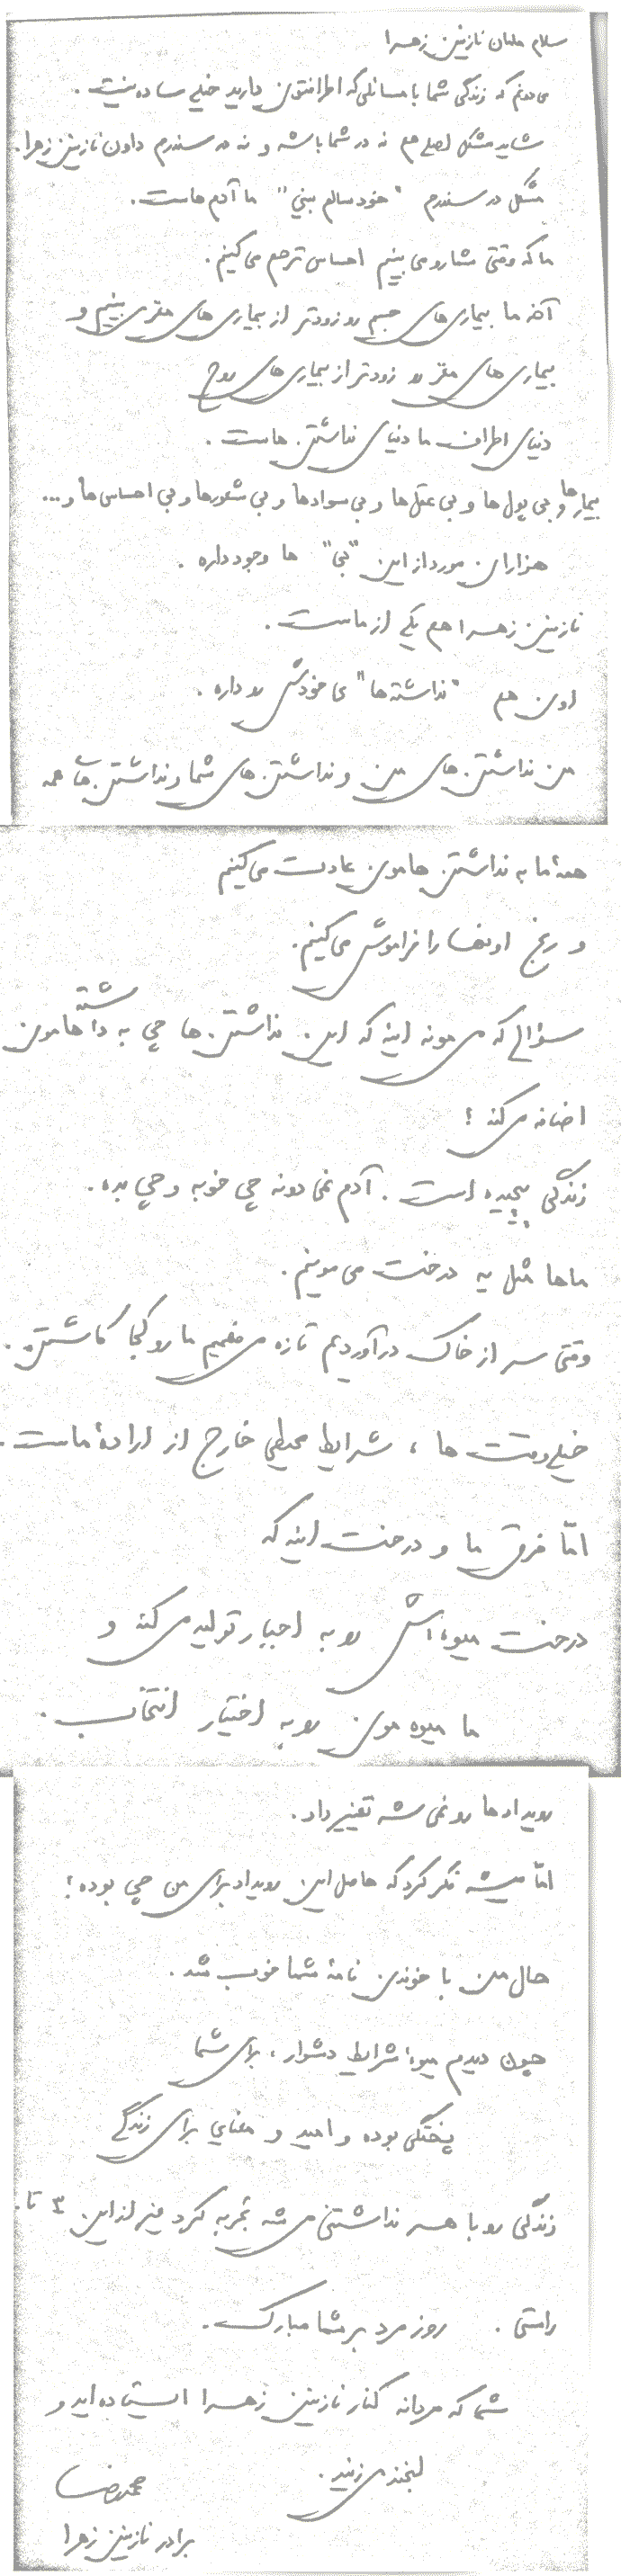 سلام مامان نازنین زهرا
می دونم که زندگی شما با مسائلی که اطرافتون دارید خیلی ساده نیست.
شاید مشکل اصلی هم نه در شما باشه و نه در سندرم داون نازنین زهرا.
مشکل در سندرم "خود سالم بینی" ما آدم هاست.
ما که وقتی شما رو می بینیم احساس ترحم می کنیم.
آخه ما بیماری های جسم رو زودتر از بیماری های مغز می بینیم و
بیماری های مغز رو زودتر از بیماری های روح
دنیای اطراف ما دنیای نداشتن هاست.
بیمارها و بی پول ها و بی عقل ها و بی سوادها و بی شعورها و بی احساس ها و...
هزاران مورد از این "بی" ها وجود داره.
نازنین زهرا هم یکی از ماست.
اون هم "نداشته ها" ی خودش رو داره.
من نداشتن های من و نداشتن های شما و نداشتن های همه
همه ما به نداشتن هامون عادت می کنیم
و رنج اونها را فراموش می کنیم.
سؤالی که می مونه اینه که این نداشتن ها چی به داشته هامون
اضافه می کنه؟
زندگی پیچیده است. آدم نمی دونه چی خوبه و چی بده.
ماها مثل یه درخت می مونیم.
وقتی سر از خاک درآوردیم تازه می فهمیم ما رو کجا کاشتن.
خیلی وقت ها، شرایط محیطی خارج از ارادهٔ ماست.
امّا فرق ما و درخت اینه که
درخت میوه اش رو به اجبار تولید می کنه و
ما میوه مون رو به اختیار انتخاب.
رویدادها رو نمی شه تغییر داد.
امّا میشه فکر کرد که حاصل این رویداد برای من چی بوده؟
حال من با خوندن نامهٔ شما خوب شد.
چون دیدم میوهٔ شرایط دشوار، برای شما
پختگی بوده و امید و معنایی برای زندگی
زندگی رو با هر نداشتنی می شه تجربه کرد غیر از این ۳ تا.
راستی. روز مرد بر شما مبارک.
شما که مردانه کنار نازنین زهرا ایستاده اید و
لبخند می زنید.
محمدرضا
برادر نازنین زهرا